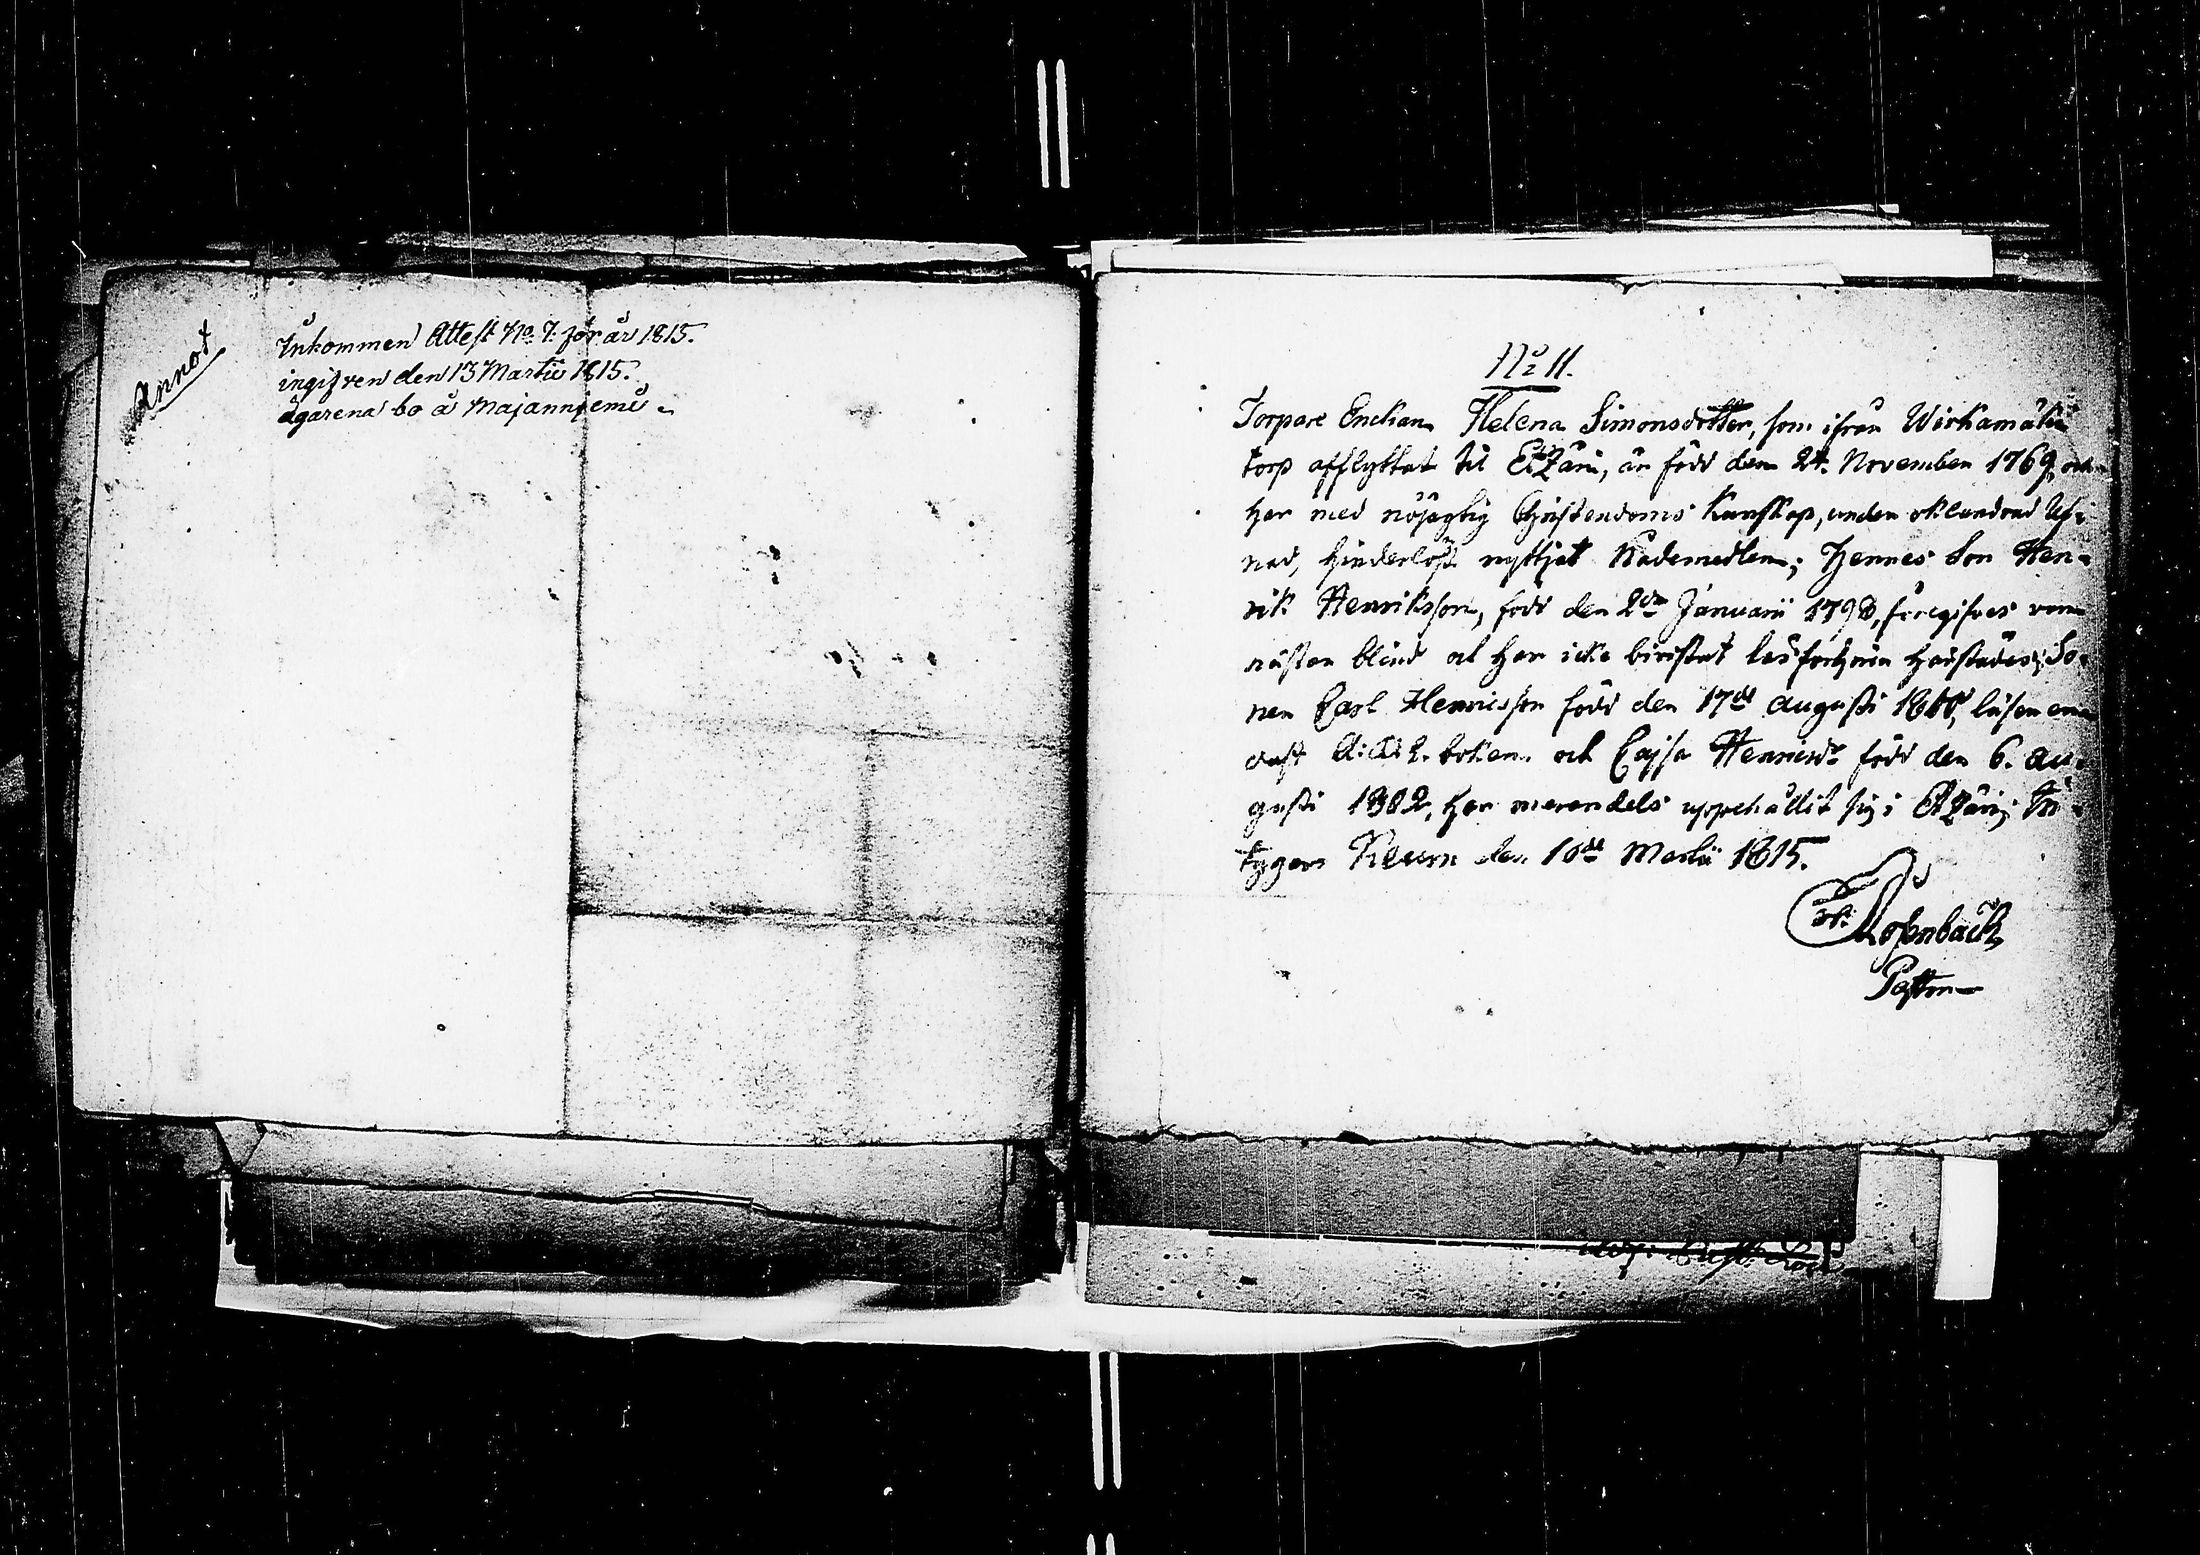 Annot
Inkommen Attest No 7. för år 1815.
ingifven den 13 Martii 1815.
ägarena bo å Majanniemi
No 11.
Torpare Enckan Helena Simonsdotter, som ifrån Wirkamäki
torp afflyttat til, är född den 24. November 1769, och
har med nöjagtig Christendoms Kunskap, under oklandrad lef-
nad, hinderlöst nyttjat Nådemedlen; Hennes Son Hen-
rik Henriksson, född den 2dra Januarii 1798, föregifves vara
nästan blind och har icke bivistat läsförhören härstädes; So-
nen Carl Henricsson född den 17de Augusti 1800, läser en-
dast boken och Cajsa Henricsdr född den 6. Au-
gusti 1802, har merendels uppehållit sig i
tygar Keuru den 10de Martii 1815.
Rosenbäck
Pastor